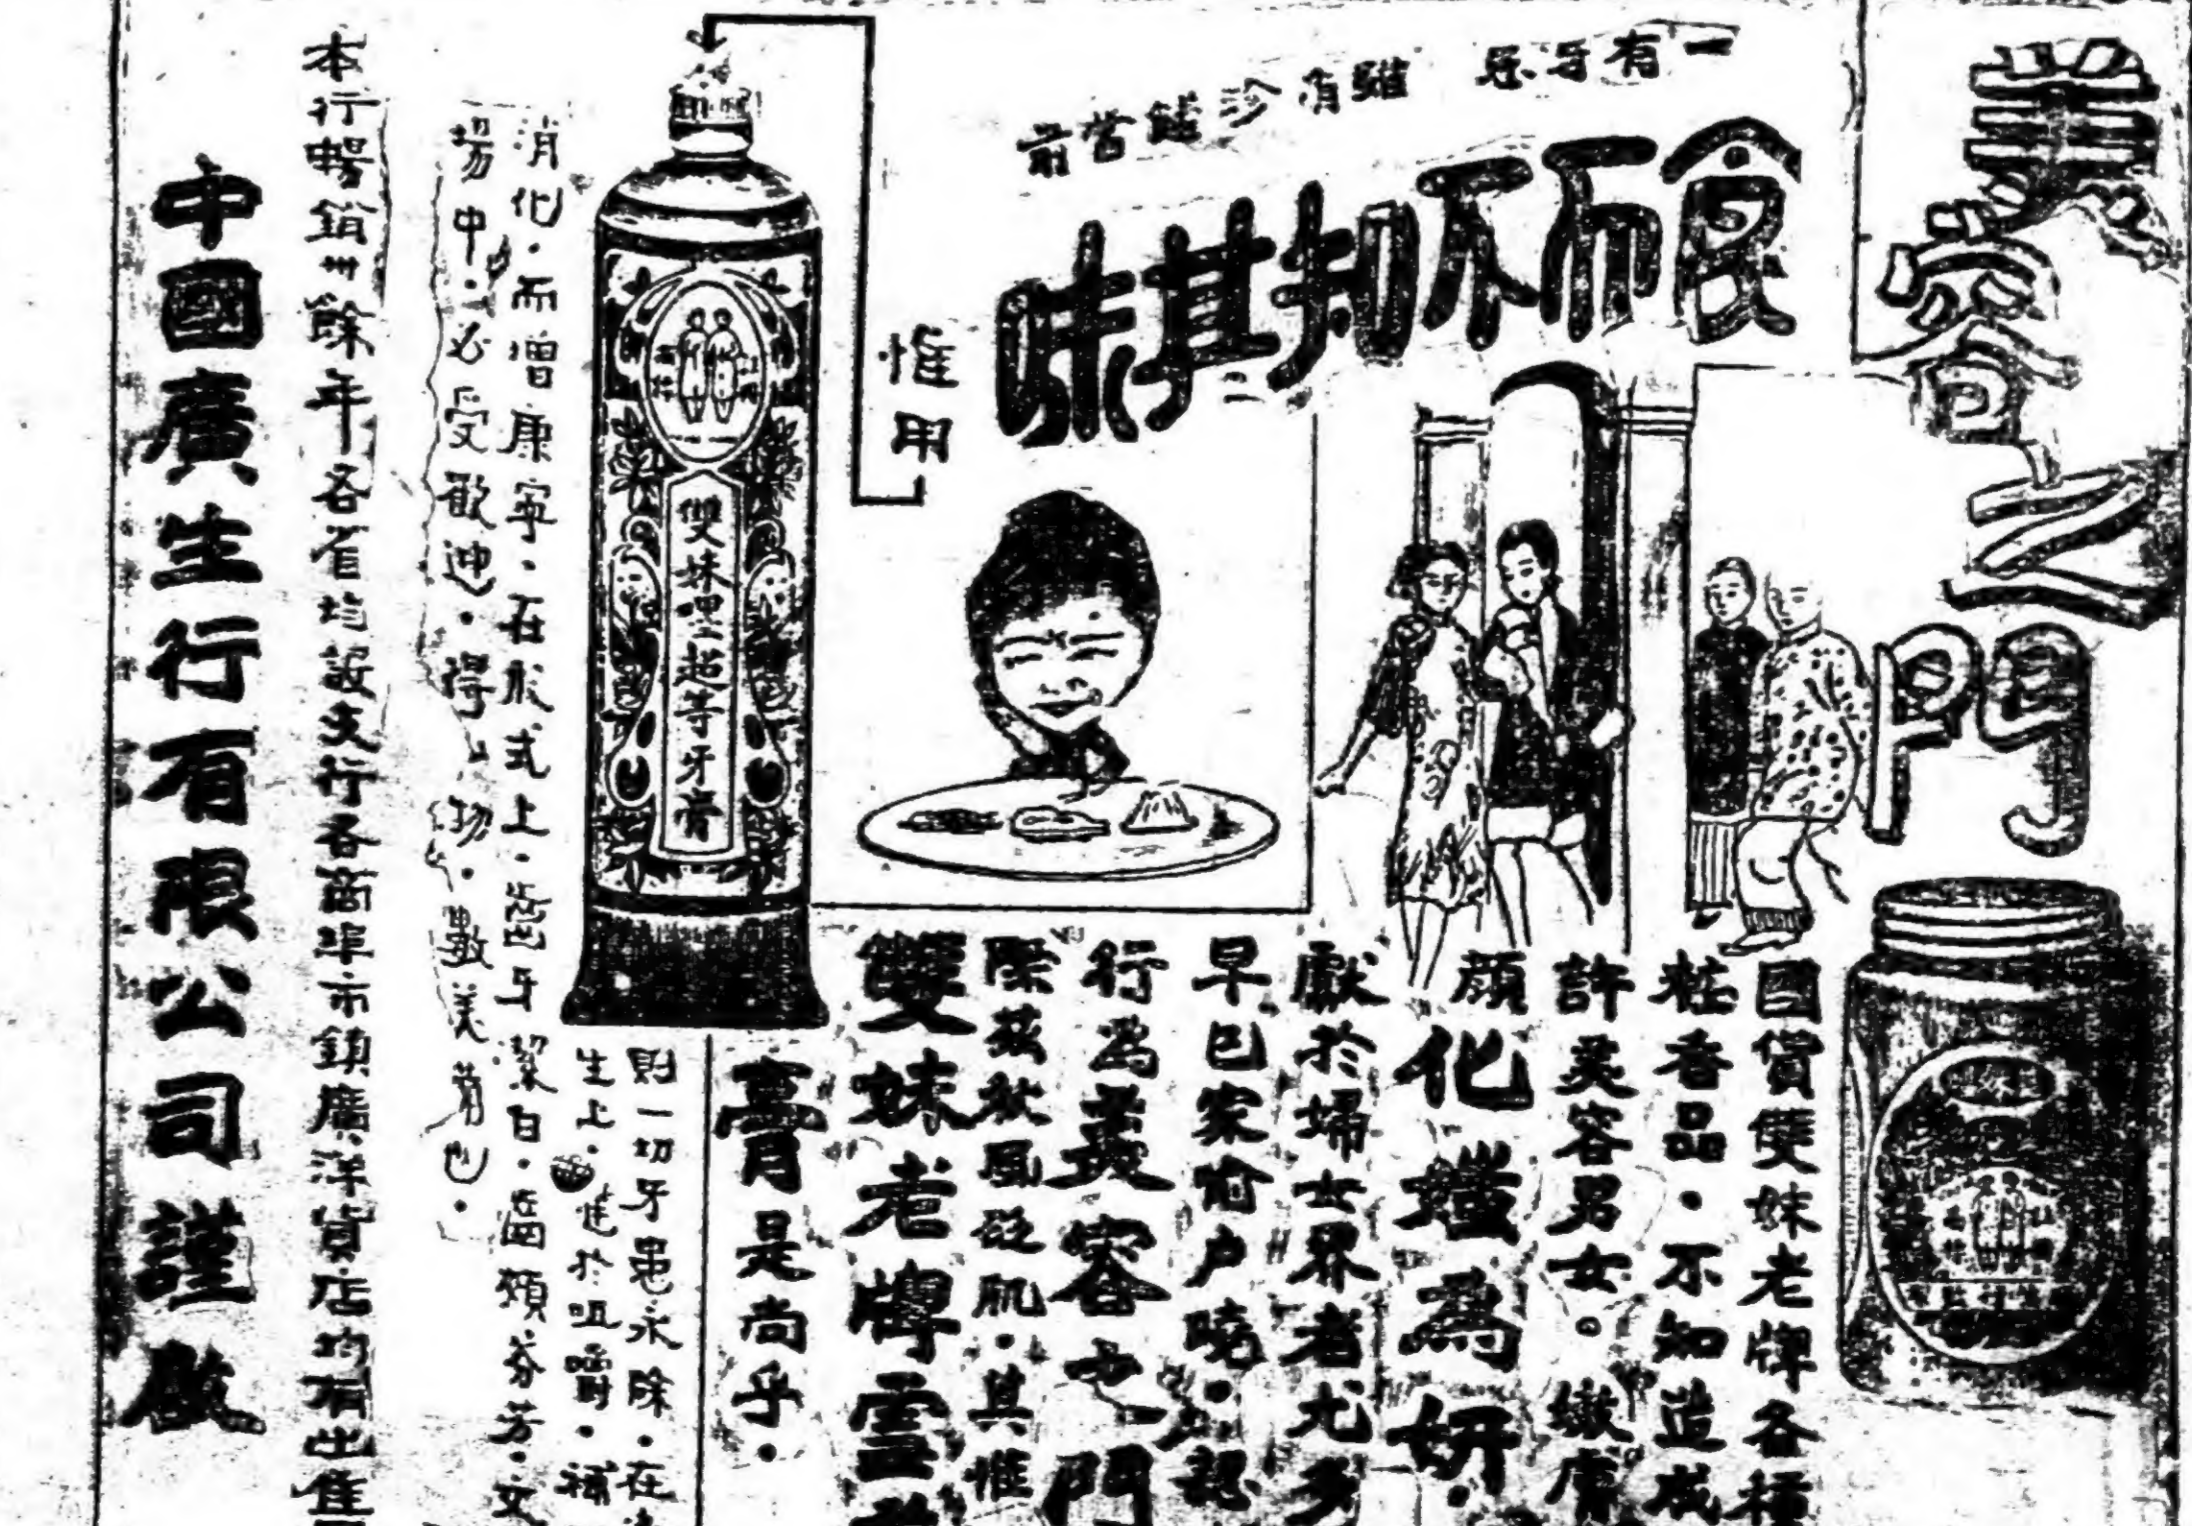 美容之門
國貨雙妹老牌各種
粧香品・不知造成
許美容男女。嫩膚
顏化媸為妍・
獻於婦女界者尤多
早已家喻户曉・認
行為美容之門
際茲秋風砭肌・其惟
雙妹老牌雪
膏是尚乎・
一有牙患 雖有珍饈當前
食而不知其味
惟用
雙妹嘿超等牙膏
則一切牙患永除・在
生上・進於咀嚼・補
消化・而增康寧・在形式上・齒牙潔白・齒頰芬芳・文
場中・必受歡迎・得一切・數美備也・
本行暢銷卅餘年各省均設支行各商埠市鎮廣洋貨店均有出售
中國廣生行有限公司謹啟